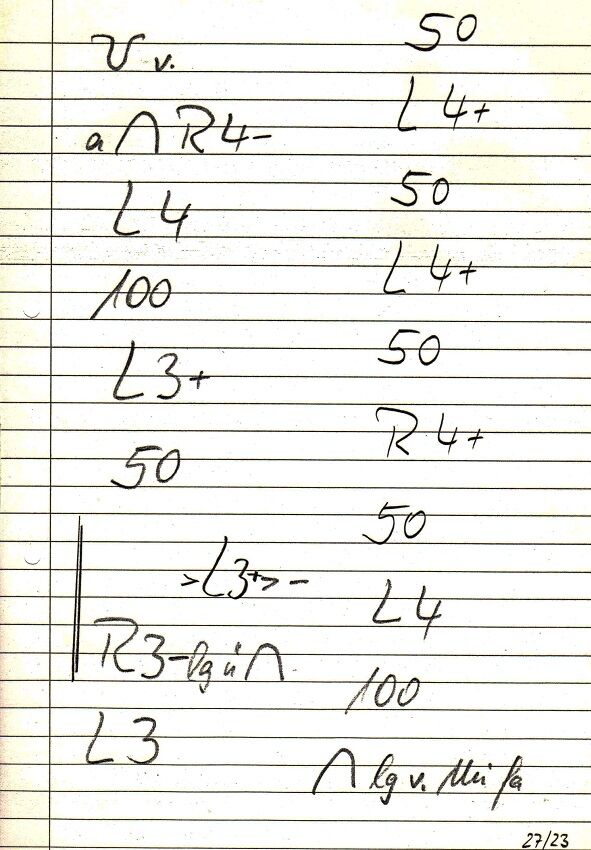 v.
a ∩ R4-
L4
100
L3+
50
>L3+> -
R3- lg ü ∩
L3
50
L4+
50
L4+
50
R4+
50
L4
100
∩ lg v.
27/23